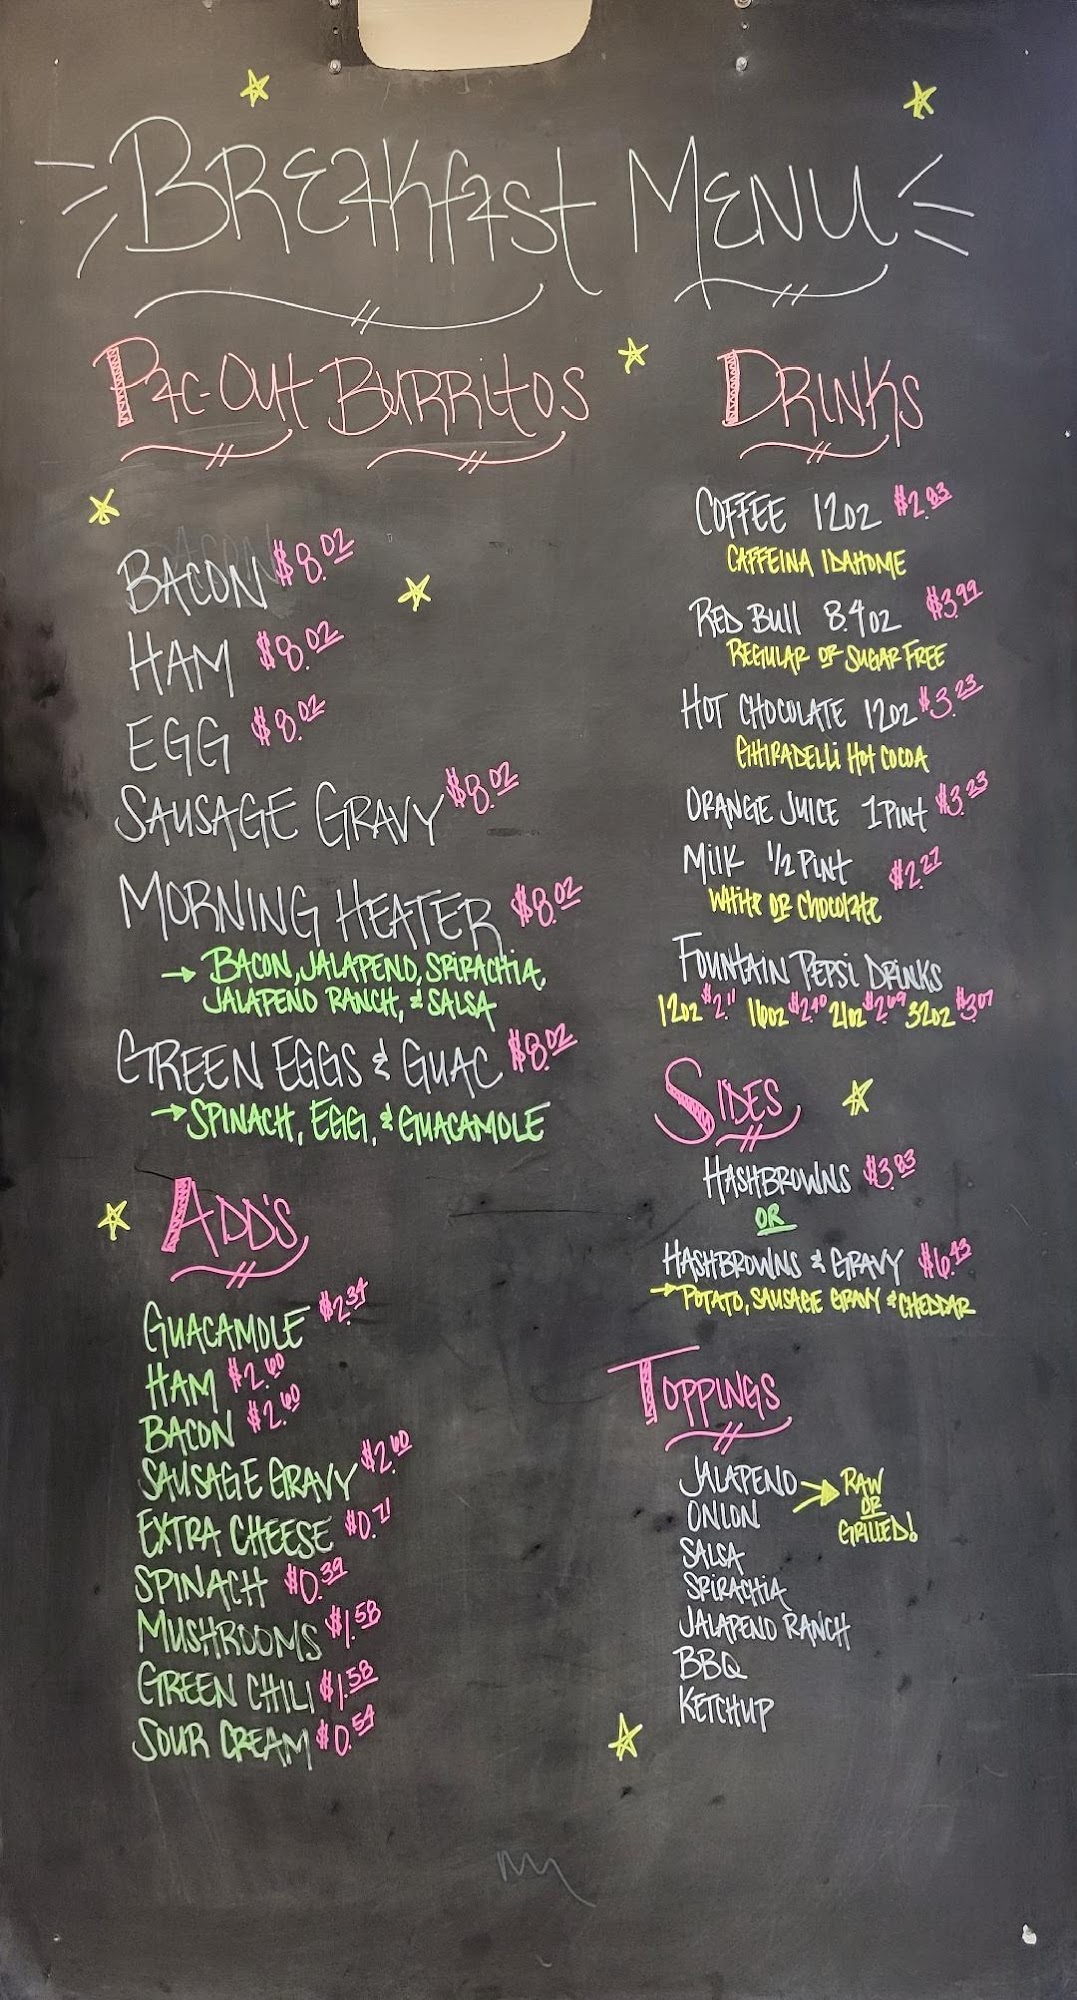 Breakfast Menu
Pac-Out Burritos
BACON $8.02
HAM $8.02
EGG $8.02
SAUSAGE GRAVY $8.02
MORNING HEATER $8.02
→ BACON, JALAPENO, SRIRACHA,
JALAPENO RANCH, & SALSA
GREEN EGGS & GUAC $8.02
→ SPINACH, EGG, & GUACAMOLE
ADD'S
GUACAMOLE $2.34
HAM $2.60
BACON $2.60
SAUSAGE GRAVY $2.60
EXTRA CHEESE $0.71
SPINACH $0.39
MUSHROOMS $1.58
GREEN CHILI $1.58
SOUR CREAM $0.54
DRINKS
COFFEE 12oz $2.83
CAFFEINA IDAHOME
RED BULL 8.4oz $3.99
REGULAR OR SUGAR FREE
HOT CHOCOLATE 12oz $3.23
GHIRADELLI HOT COCOA
ORANGE JUICE 1 PINT $3.23
MILK 1/2 PINT $2.27
WHITE OR CHOCOLATE
FOUNTAIN PEPSI DRINKS
12oz $2.11 16oz $2.40 21oz $2.69 32oz $3.07
SIDES
HASHBROWNS $3.83
OR
HASHBROWNS & GRAVY $6.43
→ POTATO, SAUSAGE GRAVY & CHEDDAR
TOPPINGS
JALAPENO → RAW
ONION OR
GRILLED!
SALSA
SRIRACHA
JALAPENO RANCH
BBQ
KETCHUP